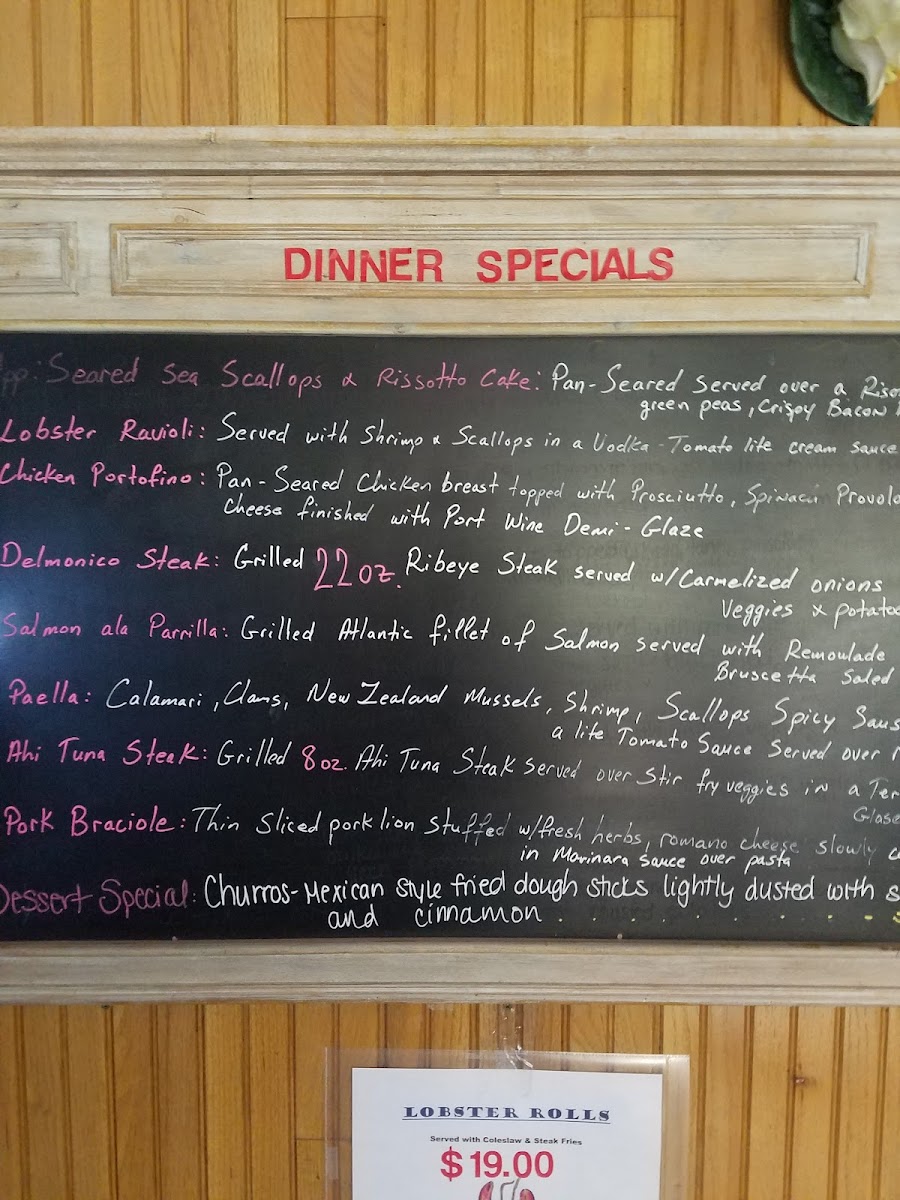 DINNER SPECIALS
pp: Seared Sea Scallops & Rissotto Cake: Pan-Seared Served over a
green peas, Crispy Bacon
Lobster Ravioli: Served with Shrimp & Scallops in a Vodka-Tomato lite cream sauce
Chicken Portofino: Pan-Seared Chicken breast topped with Prosciutto, Spinach Provolo
Cheese finished with Port Wine Demi-Glaze
Delmonico Steak: Grilled 22oz. Ribeye Steak served w/Carmelized onions
Veggies & potatoe
Salmon ala Parrilla: Grilled Atlantic fillet of Salmon served with Remoulade
Bruscetta Salad
Paella: Calamari, Clams, New Zealand Mussels, Shrimp, Scallops Spicy Saus
a lite Tomato Sauce Served over
Ahi Tuna Steak: Grilled 8oz. Ahi Tuna Steak served over stir fry veggies in a Ter
Glase
Pork Braciole: Thin Sliced pork lion stuffed w/fresh herbs, romano cheese slowly
in Marinara sauce over pasta
Dessert Special: Churros-Mexican style fried dough sticks lightly dusted with s
and cinnamon
LOBSTER ROLLS
Served with Coleslaw & Steak Fries
$19.00